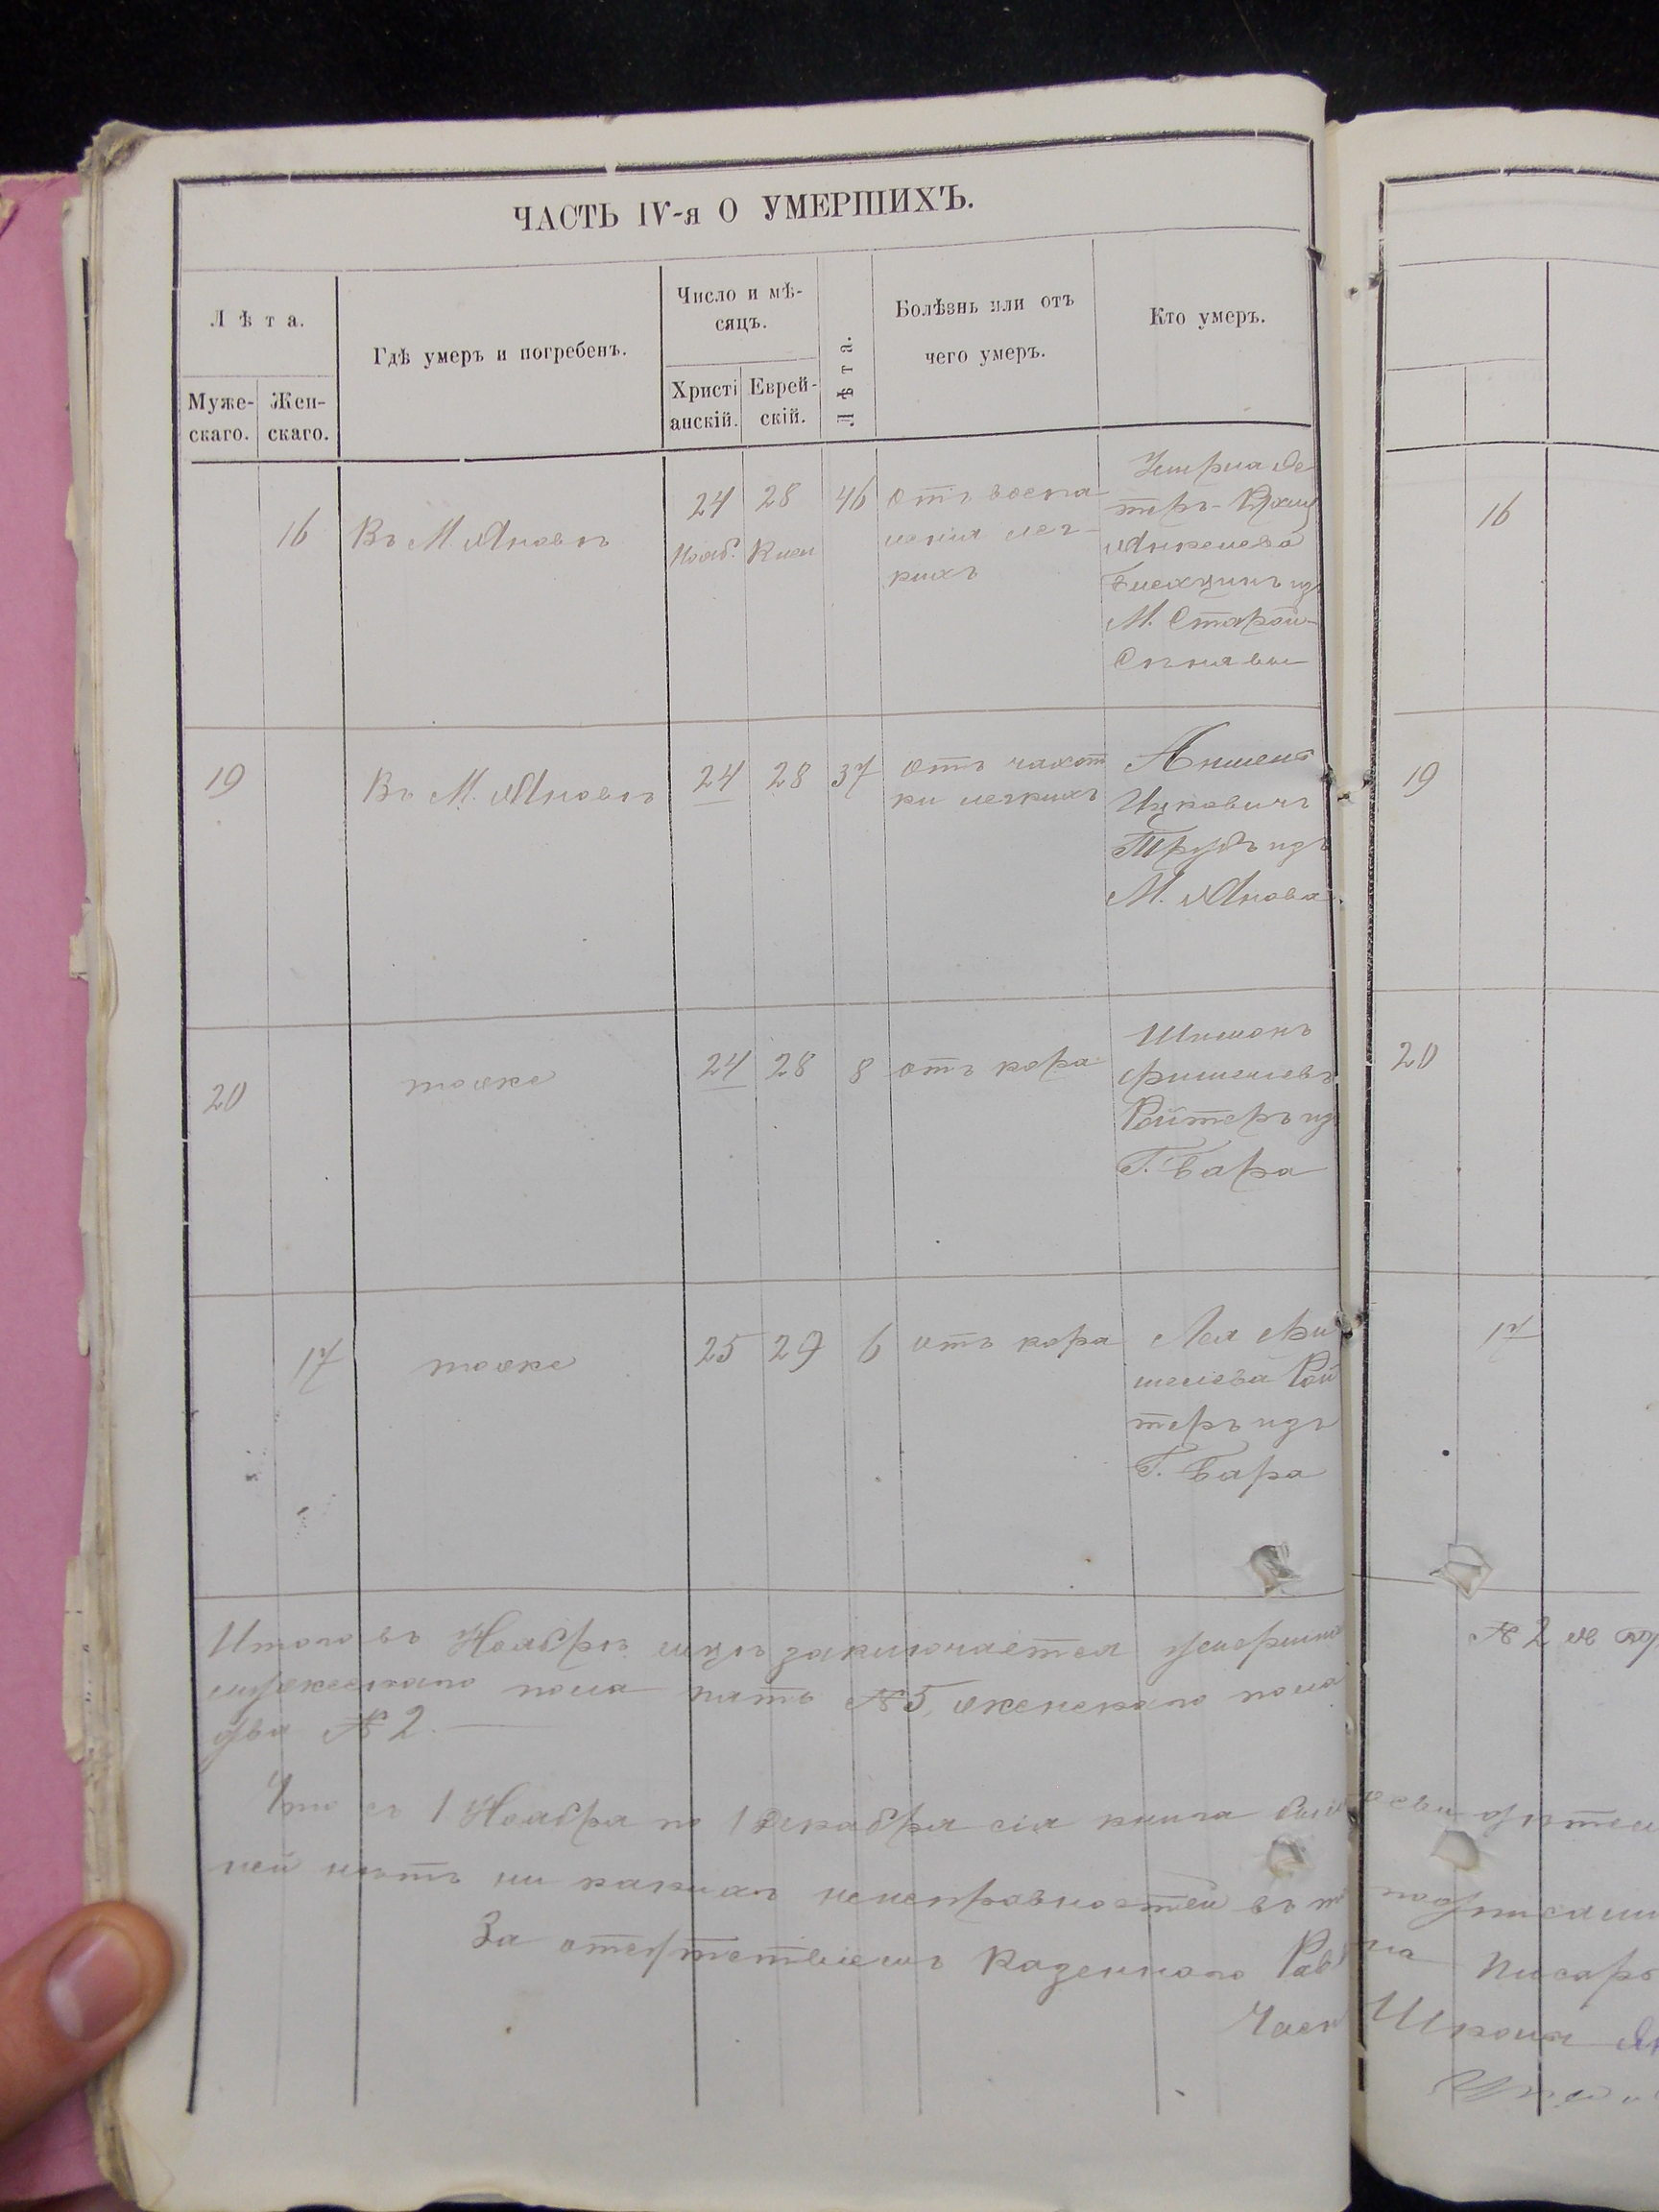 ЧАСТЬ IV-я О УМЕРШИХЪ.
Лѣта.
Муже-
скаго.
Жен-
скаго.
Гдѣ умеръ и погребенъ.
Число и мѣ-
сяцъ.
Христі
анскій.
Еврей-
скій.
Лѣта.
Болѣзнь или отъ
чего умеръ.
Кто умеръ.
16
Въ М. Яновѣ
24
Нояб.
28
46
отъ воспа
ленія лег-
кихъ
Янкелева
изъ
М. Старой-
Синявы
19
Въ М. Яновѣ
24
28
37
отъ чахот
ки легкихъ
Аншель
Ицковичъ
Трубъ изъ
М. Янова
20
тоже
24
28
8
отъ кора
Шимонъ
Фишелевъ
Ройтеръ изъ
Г. Бара
17
тоже
25
29
6
отъ кора
Лея Фи
шелева Рой
теръ изъ
Г. Бара
Итого въ Ноябрѣ мцѣ заключается умерших
мужескаго пола пять № 5, женскаго пола
два № 2.
Что съ 1 Ноября по 1 Декабря сія книга была
ней нѣтъ ни какихъ неисправностей въ
За отсутствіемъ Казеннаго Рав
16
19
20
17
№ 2
Писарь
Школы